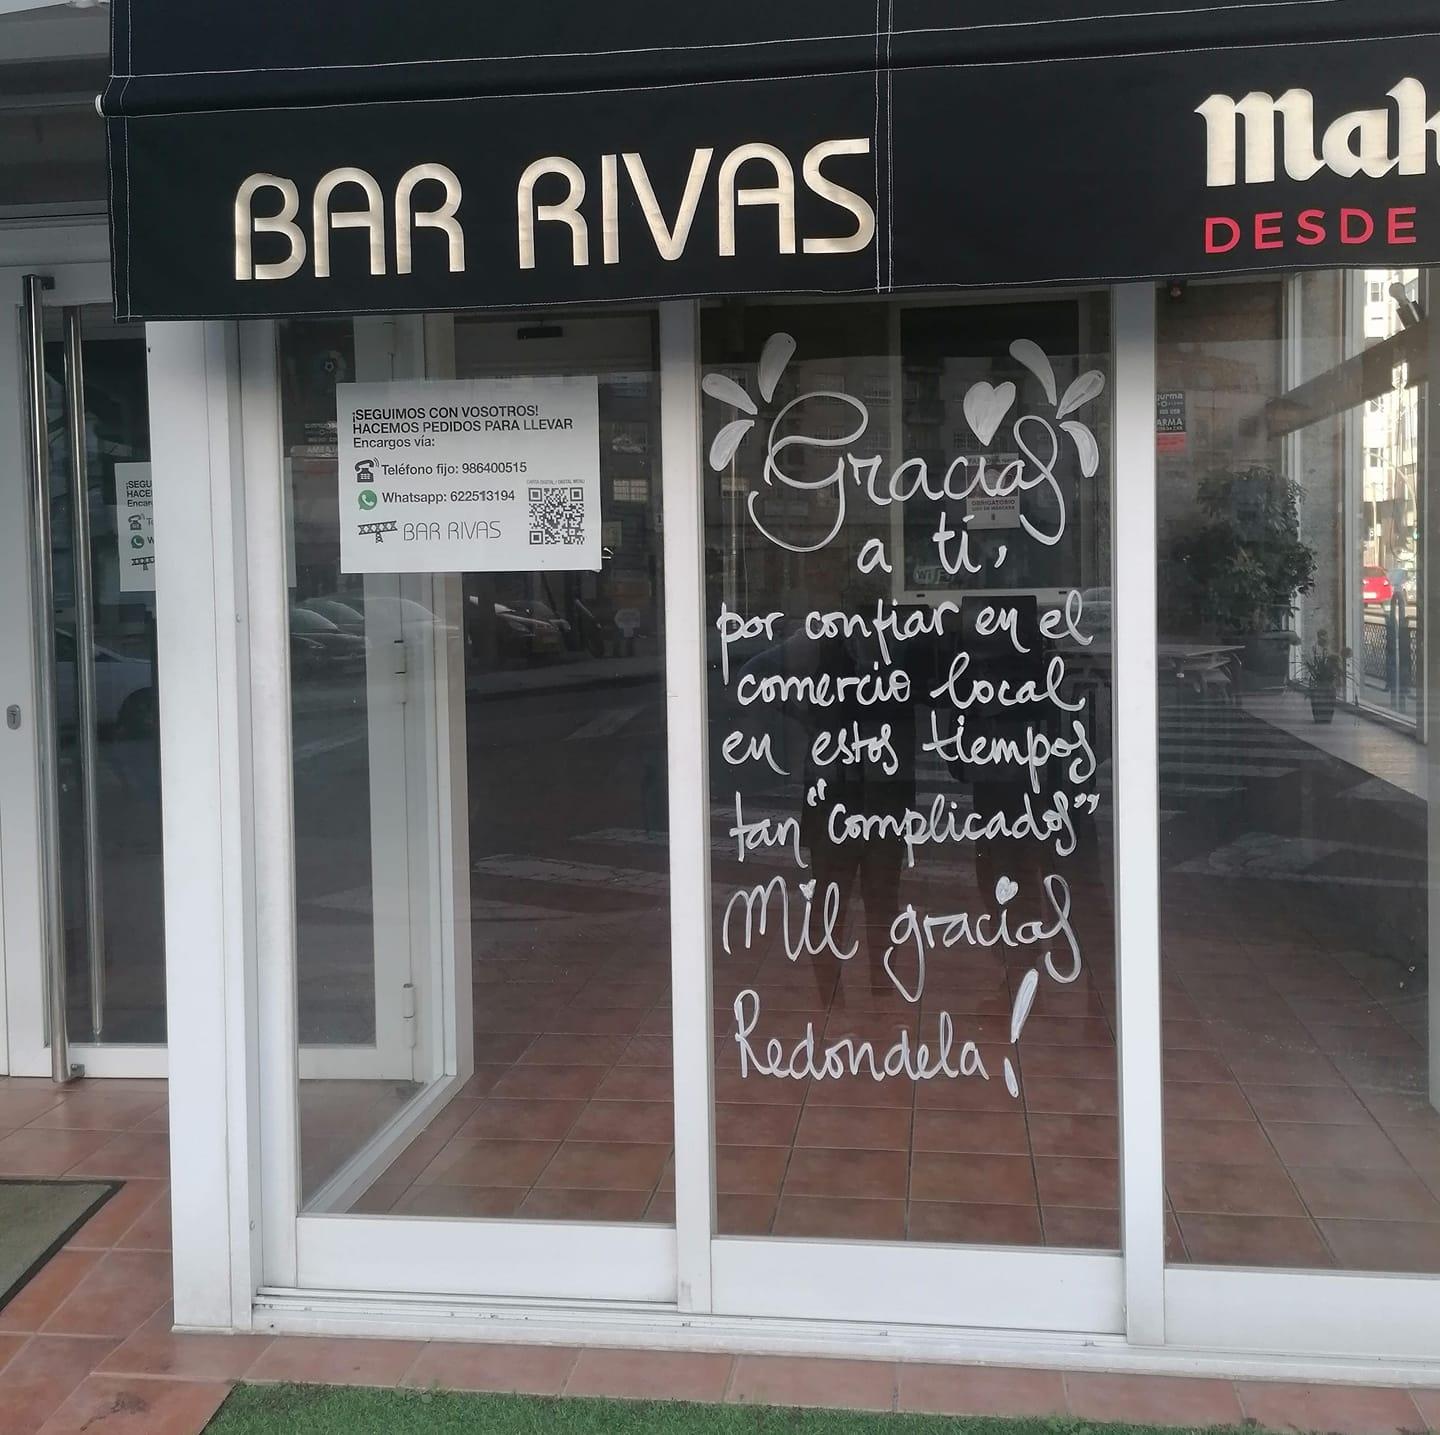 BAR RIVAS
DESDE
¡SEGUIMOS CON VOSOTROS!
HACEMOS PEDIDOS PARA LLEVAR
Encargos vía:
Teléfono fijo: 986400515
Whatsapp: 622513194
CARTA DIGITAL / DIGITAL MENU
BAR RIVAS
Gracias
a ti,
por confiar en el
comercio local
en estos tiempos
tan "complicados"
Mil gracias
Redondela!